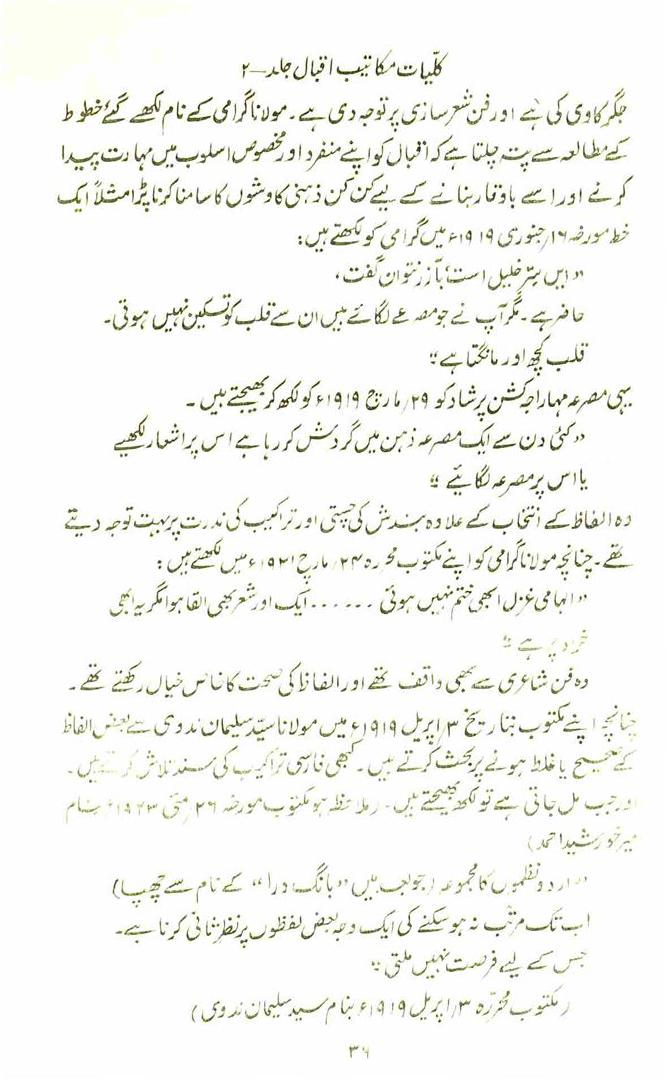 کلّیات مکاتیب اقبال جلد-۲
جگر کاوی کی ہے اور فن شعر سازی پر توجہ دی ہے۔ مولانا گرامی کے نام لکھے گئے خطوط
کے مطالعہ سے پتہ چلتا ہے کہ اقبال کو اپنے منفرد اور مخصوص اسلوب میں مہارت پیدا
کرنے اور اسے باوقار بنانے کے لیے کن کن ذہنی کاوشوں کا سامنا کرنا پڑا مثلاً ایک
خط مورخہ ۱۶/جنوری ۱۹۱۹ء میں گرامی کو لکھتے ہیں:
"ایں سرِّ خلیل است بآزر نتواں گفت،
حاضر ہے۔ مگر آپ نے جو مصرعے لگائے ہیں ان سے قلب کو تسکین نہیں ہوتی۔
قلب کچھ اور مانگتا ہے"
یہی مصرعہ مہاراجہ کشن پرشاد کو ۲۹/مارچ ۱۹۱۹ء کو لکھ کر بھیجتے ہیں۔
"کئی دن سے ایک مصرعہ ذہن میں گردش کر رہا ہے اس پر اشعار لکھیے
یا اس پر مصرعہ لگائیے"
وہ الفاظ کے انتخاب کے علاوہ بندش کی چستی اور تراکیب کی ندرت پر بہت توجہ دیتے
تھے۔ چنانچہ مولانا گرامی کو اپنے مکتوب محررہ ۲۴/مارچ ۱۹۲۱ء میں لکھتے ہیں:
"الہامی غزل ابھی ختم نہیں ہوئی ...... ایک اور شعر بھی القا ہوا مگر یہ ابھی
خراد پر ہے"
وہ فن شاعری سے بھی واقف تھے اور الفاظ کی صحت کا خاص خیال رکھتے تھے۔
چنانچہ اپنے مکتوب بتاریخ ۳/اپریل ۱۹۱۹ء میں مولانا سیّد سلیمان ندوی سے بعض الفاظ
کے صحیح یا غلط ہونے پر بحث کرتے ہیں۔ کبھی فارسی تراکیب کی سند تلاش کرتے ہیں۔
اور جب مل جاتی ہے تو لکھ بھیجتے ہیں۔ (ملاحظہ ہو مکتوب مورخہ ۲۶/مئی ۱۹۲۳ء بنام
میر خورشید احمد)
"اردو نظموں کا مجموعہ (جو بعد میں "بانگ درا" کے نام سے چھپا)
اب تک مرتّب نہ ہو سکنے کی ایک وجہ بعض لفظوں پر نظر ثانی کرنا ہے۔
جس کے لیے فرصت نہیں ملتی"
(مکتوب محرّرہ ۳/اپریل ۱۹۱۹ء بنام سید سلیمان ندوی)
۳۶